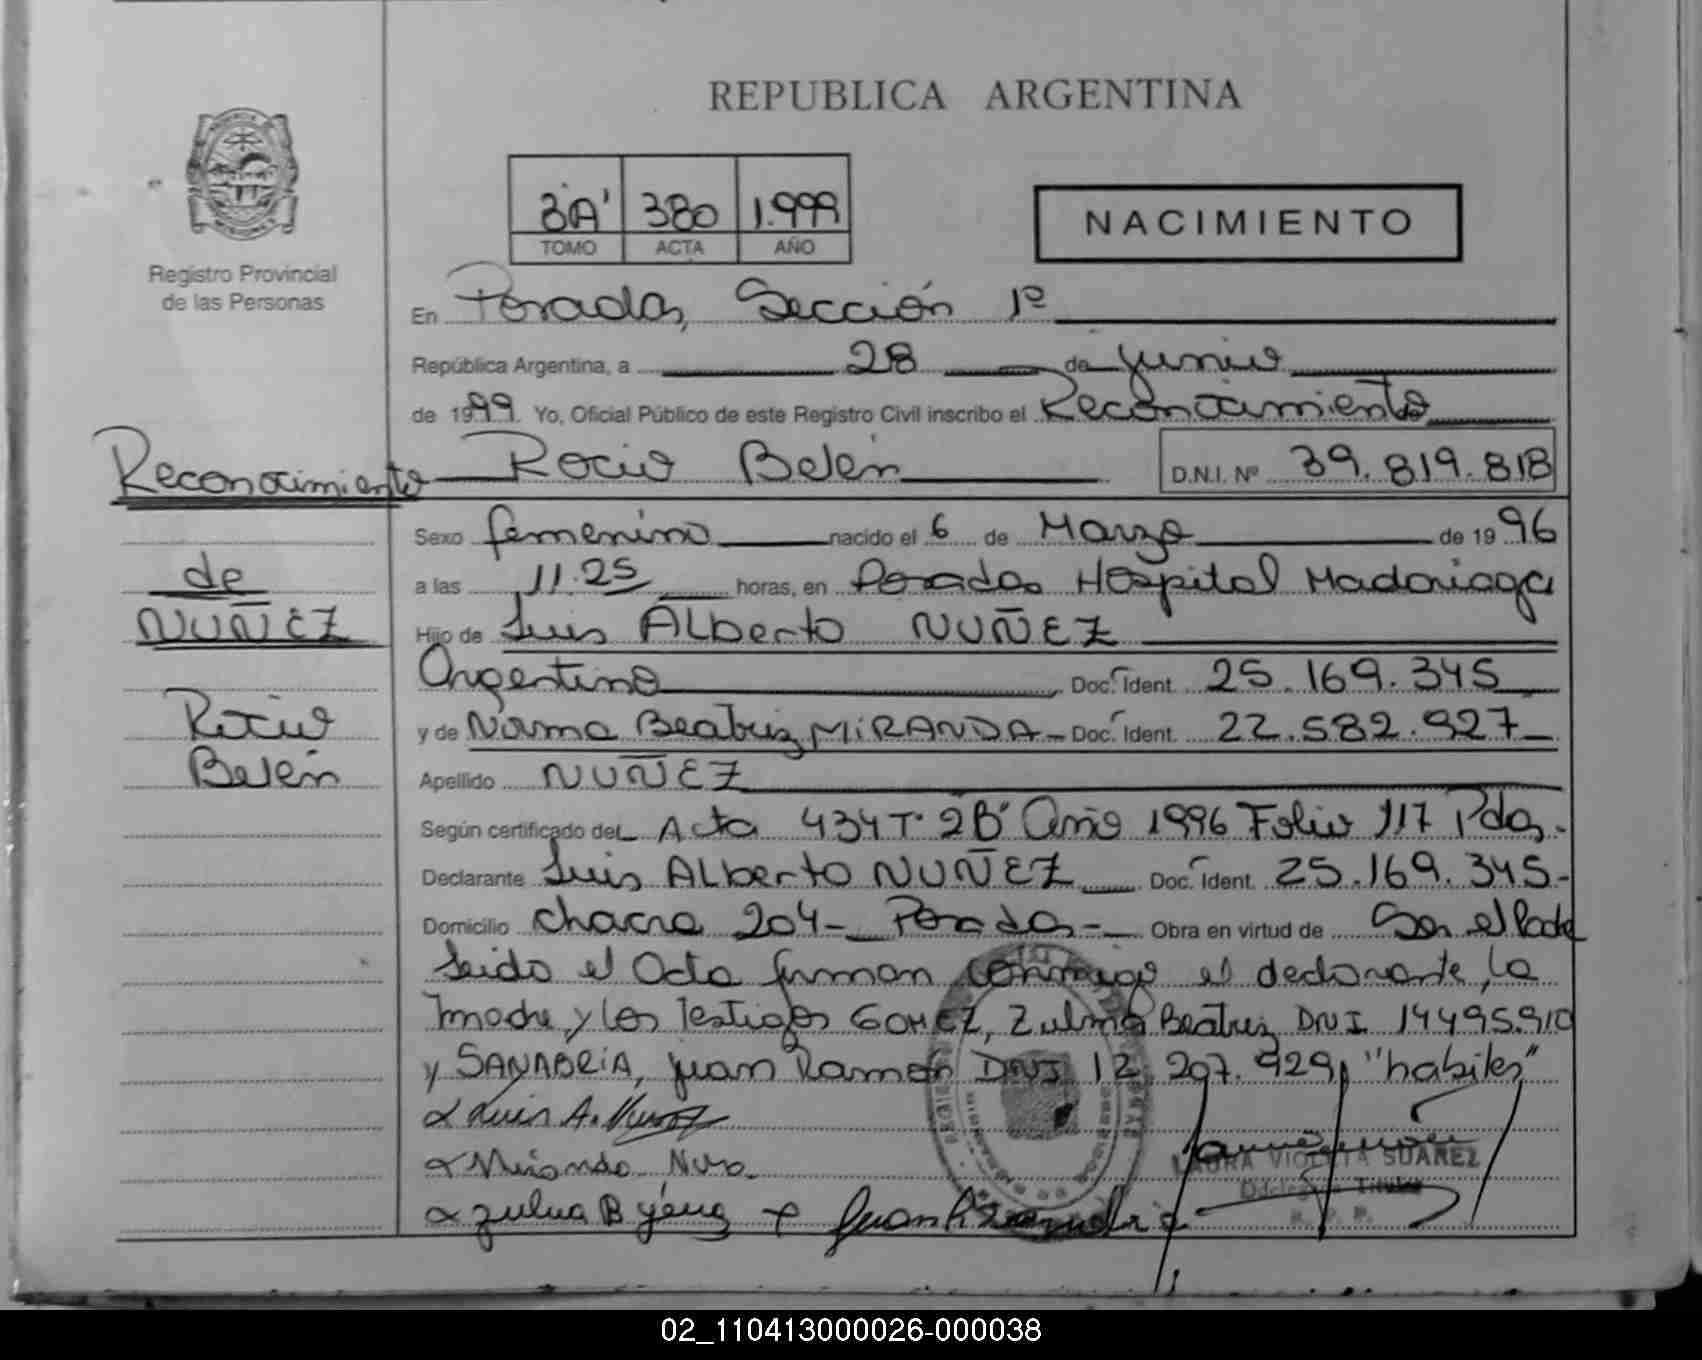 REPUBLICA ARGENTINA
3A' 380 1.999
TOMO ACTA AÑO
NACIMIENTO
Registro Provincial
de las Personas
En Posadas, Sección 1º
República Argentina, a 28 de junio
de 1999. Yo, Oficial Público de este Registro Civil inscribo el Reconocimiento
Rocio Belén D.N.I. Nº 39.819.818
Reconocimiento
de
NUÑEZ
Rocio
Belén
Sexo femenino nacido el 6 de Marzo de 1996
a las 11.25 horas, en Posadas Hospital Madariaga
Hijo de Luis ALberto NUÑEZ
Argentino Doc. Ident. 25.169.345
y de Norma Beatriz MIRANDA - Doc. Ident. 22.582.927
Apellido NUÑEZ
Según certificado del Acta 434 T. 2B' Año 1996 Folio 117 Pdas.
Declarante Luis ALberto NUÑEZ Doc. Ident. 25.169.345.-
Domicilio chacra 204- Posadas- Obra en virtud de Ser el Padre
Leido el Acta firman conmigo el declarante, la
madre, y los Testigos GOMEZ, Zulma Beatriz DNI 14495.910
y SANABRIA, juan Ramón DNI 12.297.929, "habiles"
Luis A. Nuñez
Miranda
LAURA VIOLETA SUAREZ
Delegada Titular
R. P. P.
02_110413000026-000038